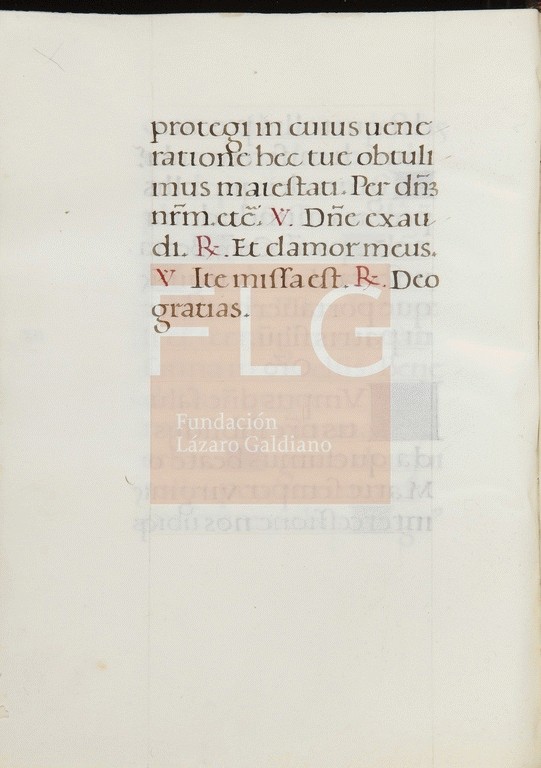 protegi in cuius uene
ratione hec tue obtuli
mus maiestati. Per dñȝ
nr̃m. etc̃. V. Dñe exau
di. ℞. Et clamor meus.
V Ite missa est. ℞. Deo
gratias.
FLG
Fundación
Lázaro Galdiano